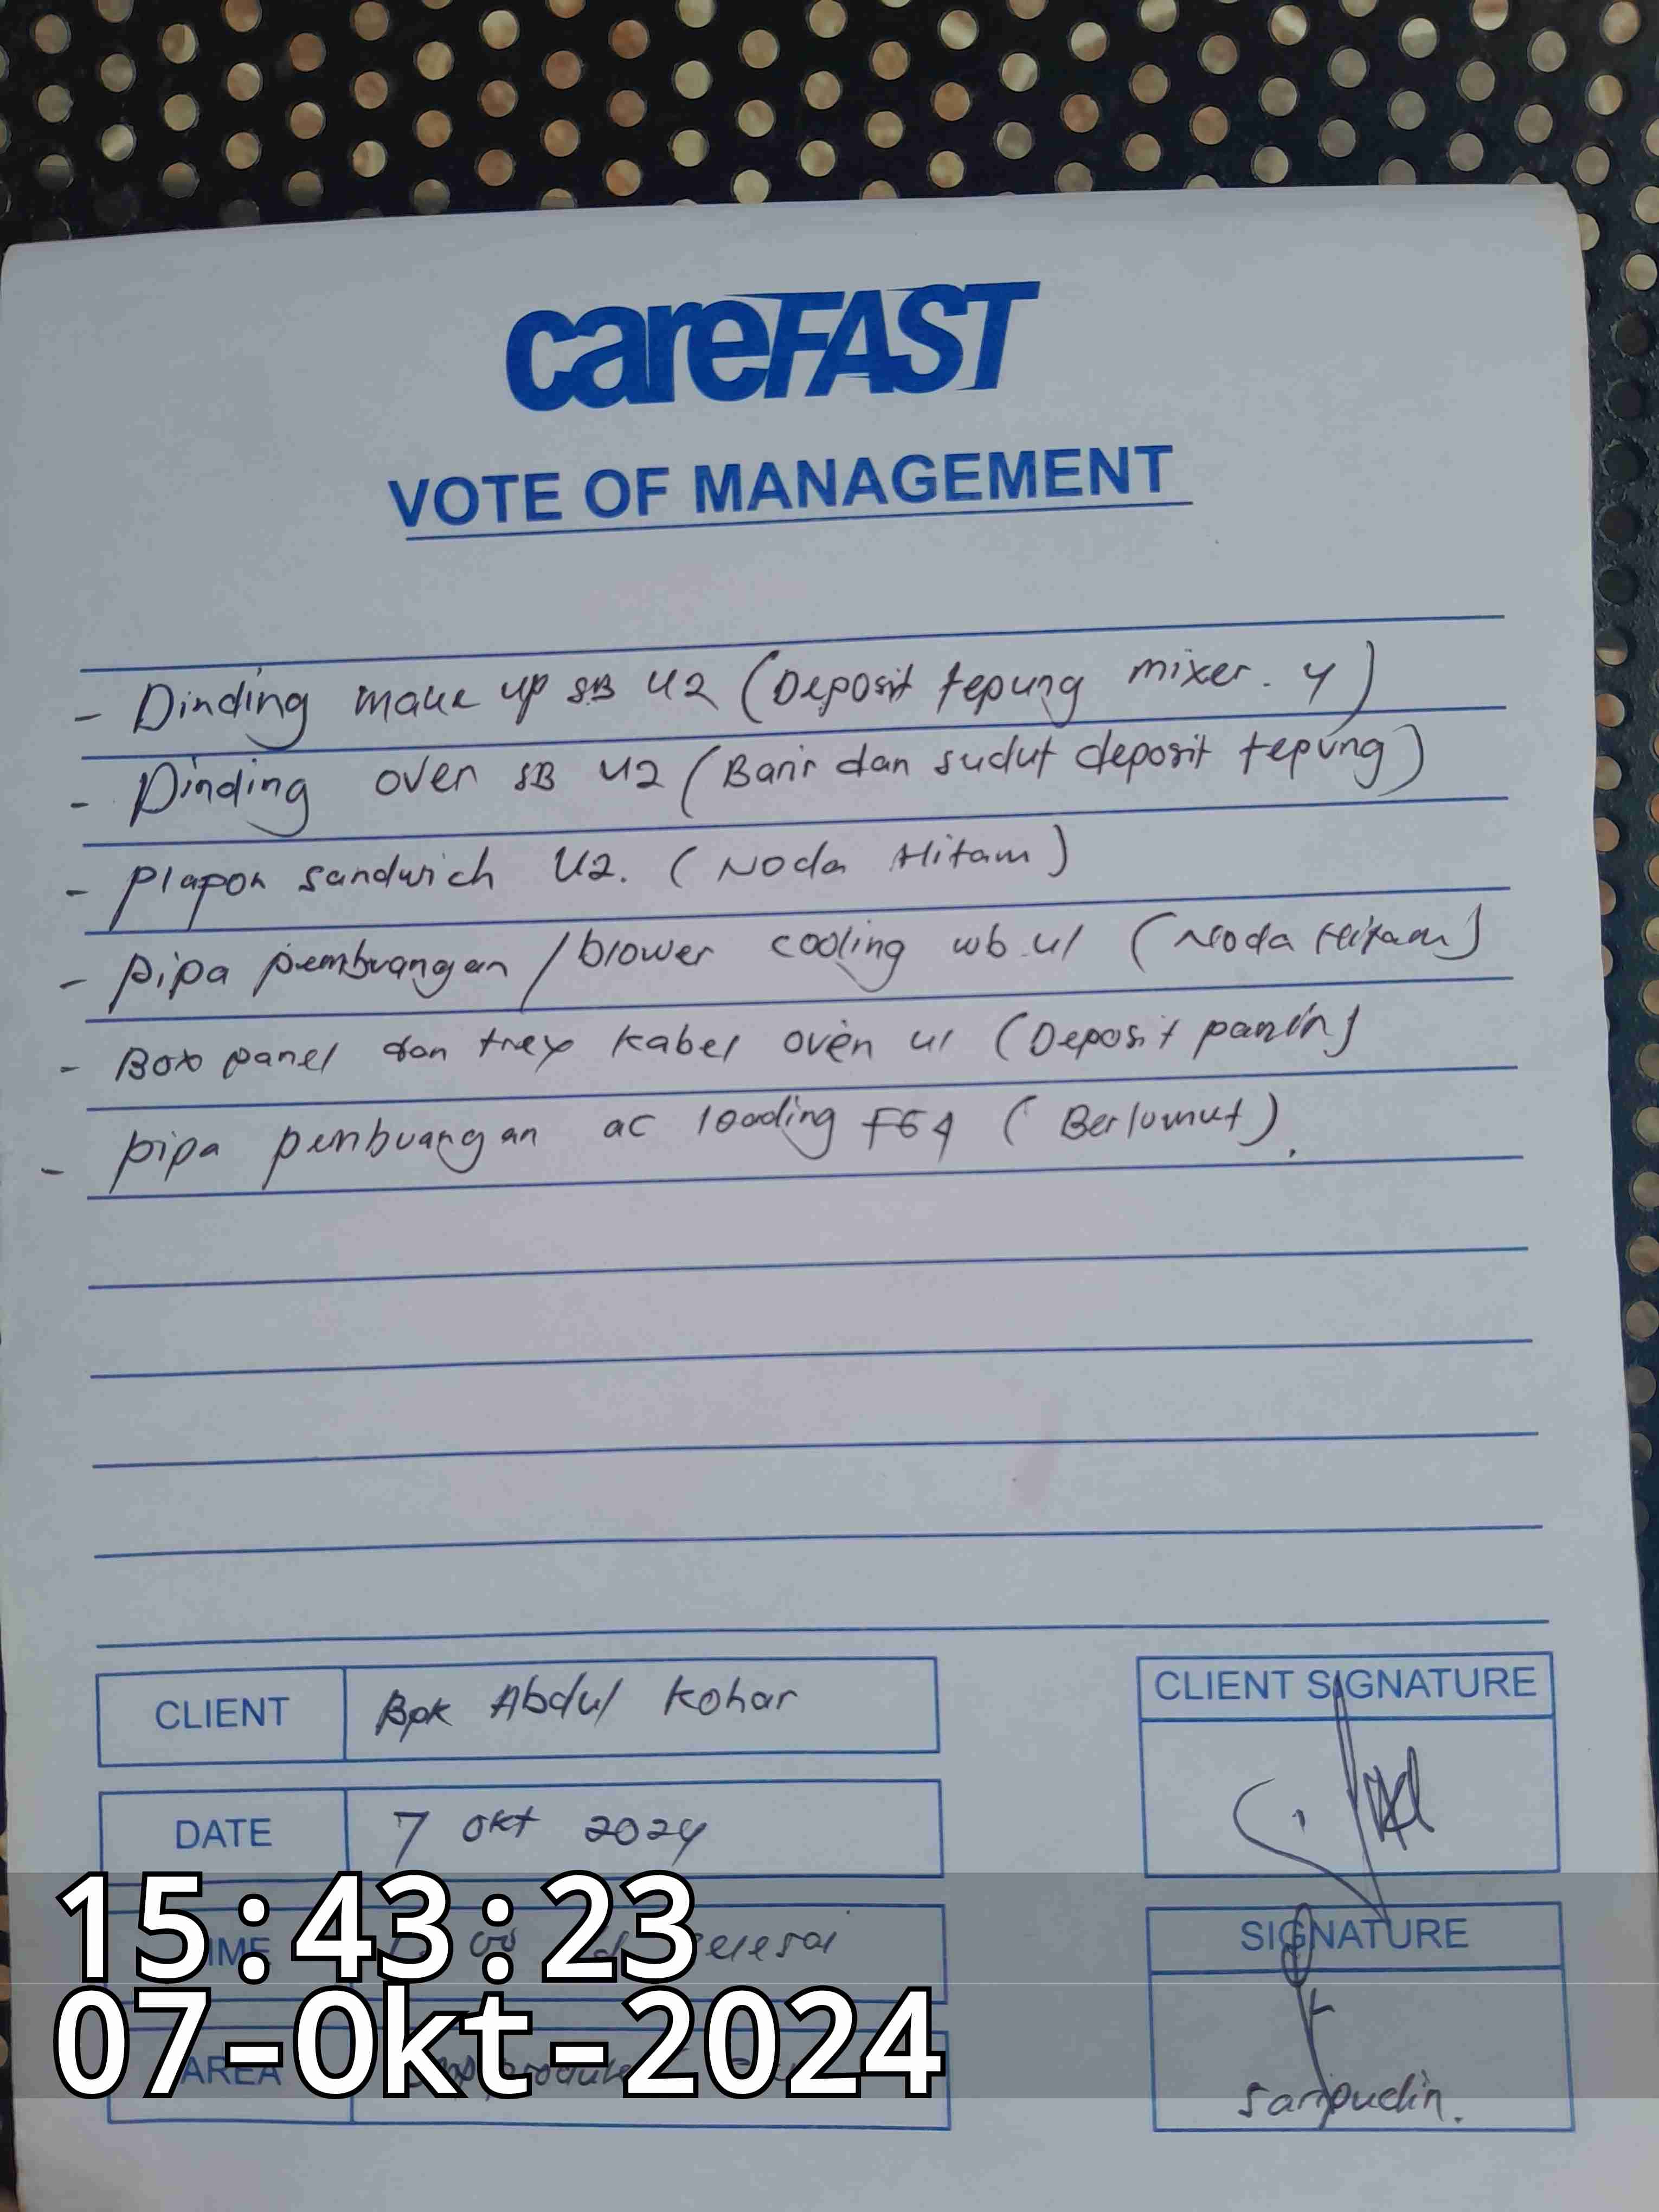 careFAST
VOTE OF MANAGEMENT
- Dinding make up SB U2 (Deposit tepung mixer. 4)
- Dinding over SB U2 (Barir dan sudut deposit tepung)
- Plapon sandwich U2. (Noda Hitam)
- pipa pembuangan / blower cooling wb U1 (Noda Hitam)
- Box panel dan trey kabel oven U1 (Deposit
- pipa penbuangan ac loading FG 4 (Berlumut).
CLIENT Bpk Abdul Kohar
CLIENT SIGNATURE
DATE 7 Okt 2024
selesai
SIGNATURE
AREA
saripudin.
15:43:23
07-Okt-2024